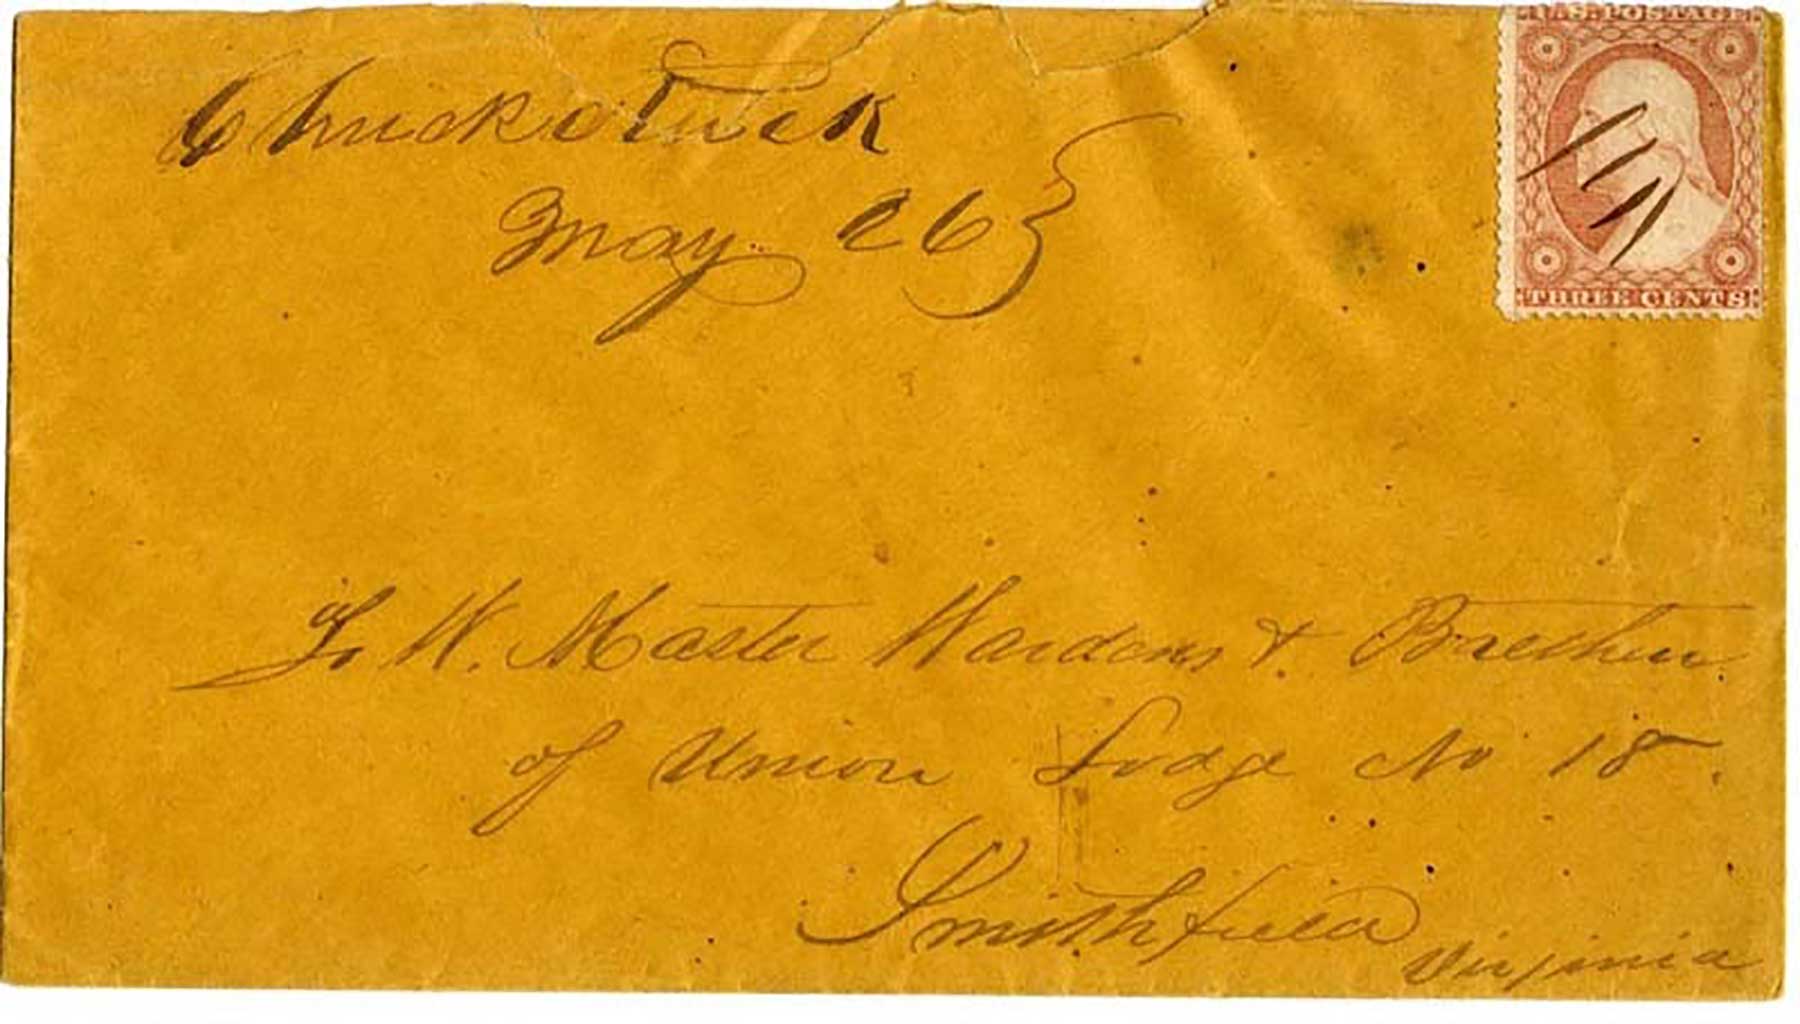 Chuckotuck
May 26
U.S. POSTAGE
THREE CENTS
To W. Master Wardens & Brethen
of Union Lodge No 18.
Smithfield
Virginia